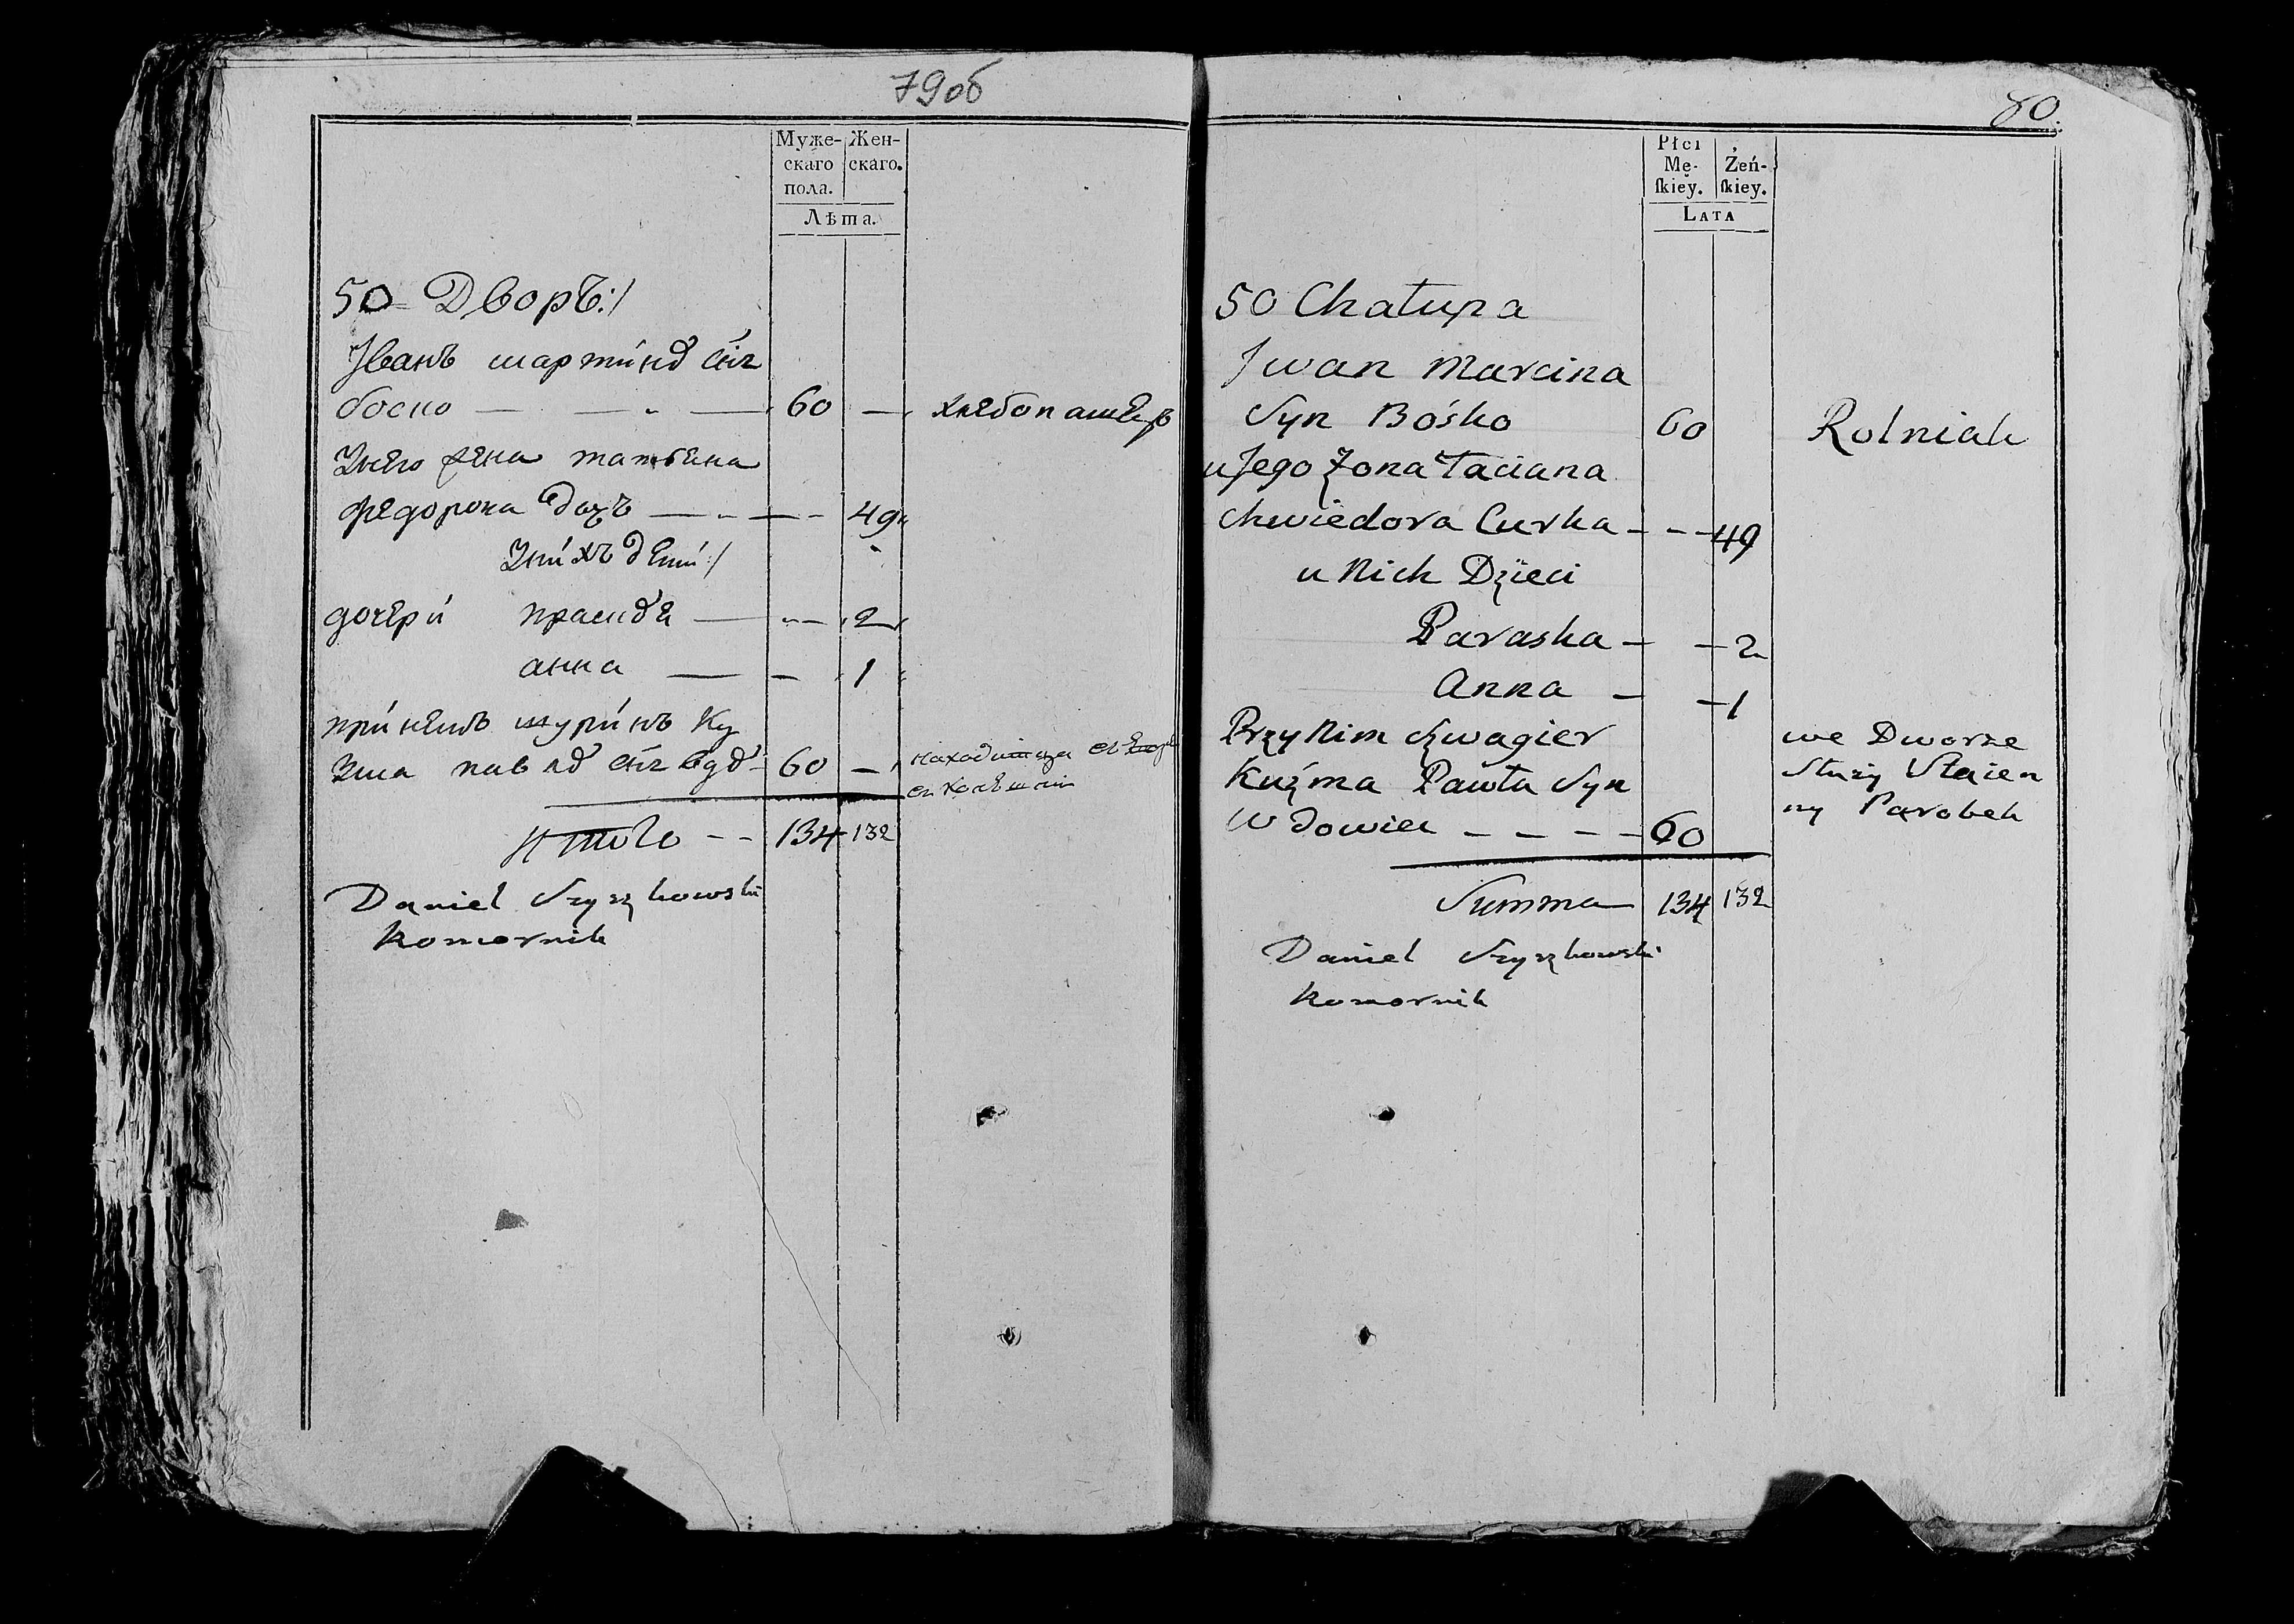 79об
Муже-
скаго
пола.
Жен-
скаго.
Лѣта.
50 Дворъ:/
Iванъ мартинȣ снъ
боско — — 60 — хлебопашецъ
Унего жена татьяна
федорова дочъ — — — 49
Унихъ дети:/
дочери праскȣя — — 2
анна — — 1
принемъ шуринъ Ку
зма павлȣ снъ вдȣ 60 —
находитца
Итого — — 134 132
Daniel Szyszkowski
Komornik
80.
Płci
Mę-
ſkiey.
Żeń-
ſkiey.
Lata
50 Chałupa
Jwan Marcina
Syn Bośko 60 Rolnik
u Jego Żona Taciana
Chwiedora Curka - - - 49
u Nich Dzieci
Paraska — — 2
Anna — — 1
Przy Nim Szwagier
Kuźma Pawła Syn
Wdowiec — — — — 60
we Dworze
Służy Stajen
ny Parobek
Summa 134 132
Daniel Szyszkowski
Komornik